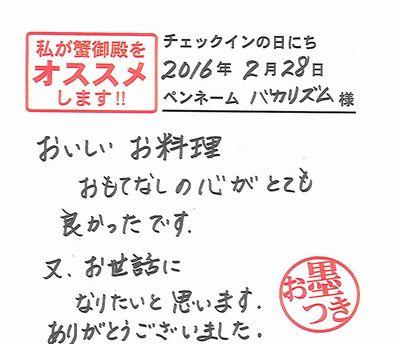 私が蟹御殿を
オススメ
します!!
チェックインの日にち
2016年 2月28日
ペンネーム バカリズム 様
おいしい お料理
おもてなしの心がとても
良かったです.
又、お世話に
なりたいと思います.
ありがとうございました.
お墨つき